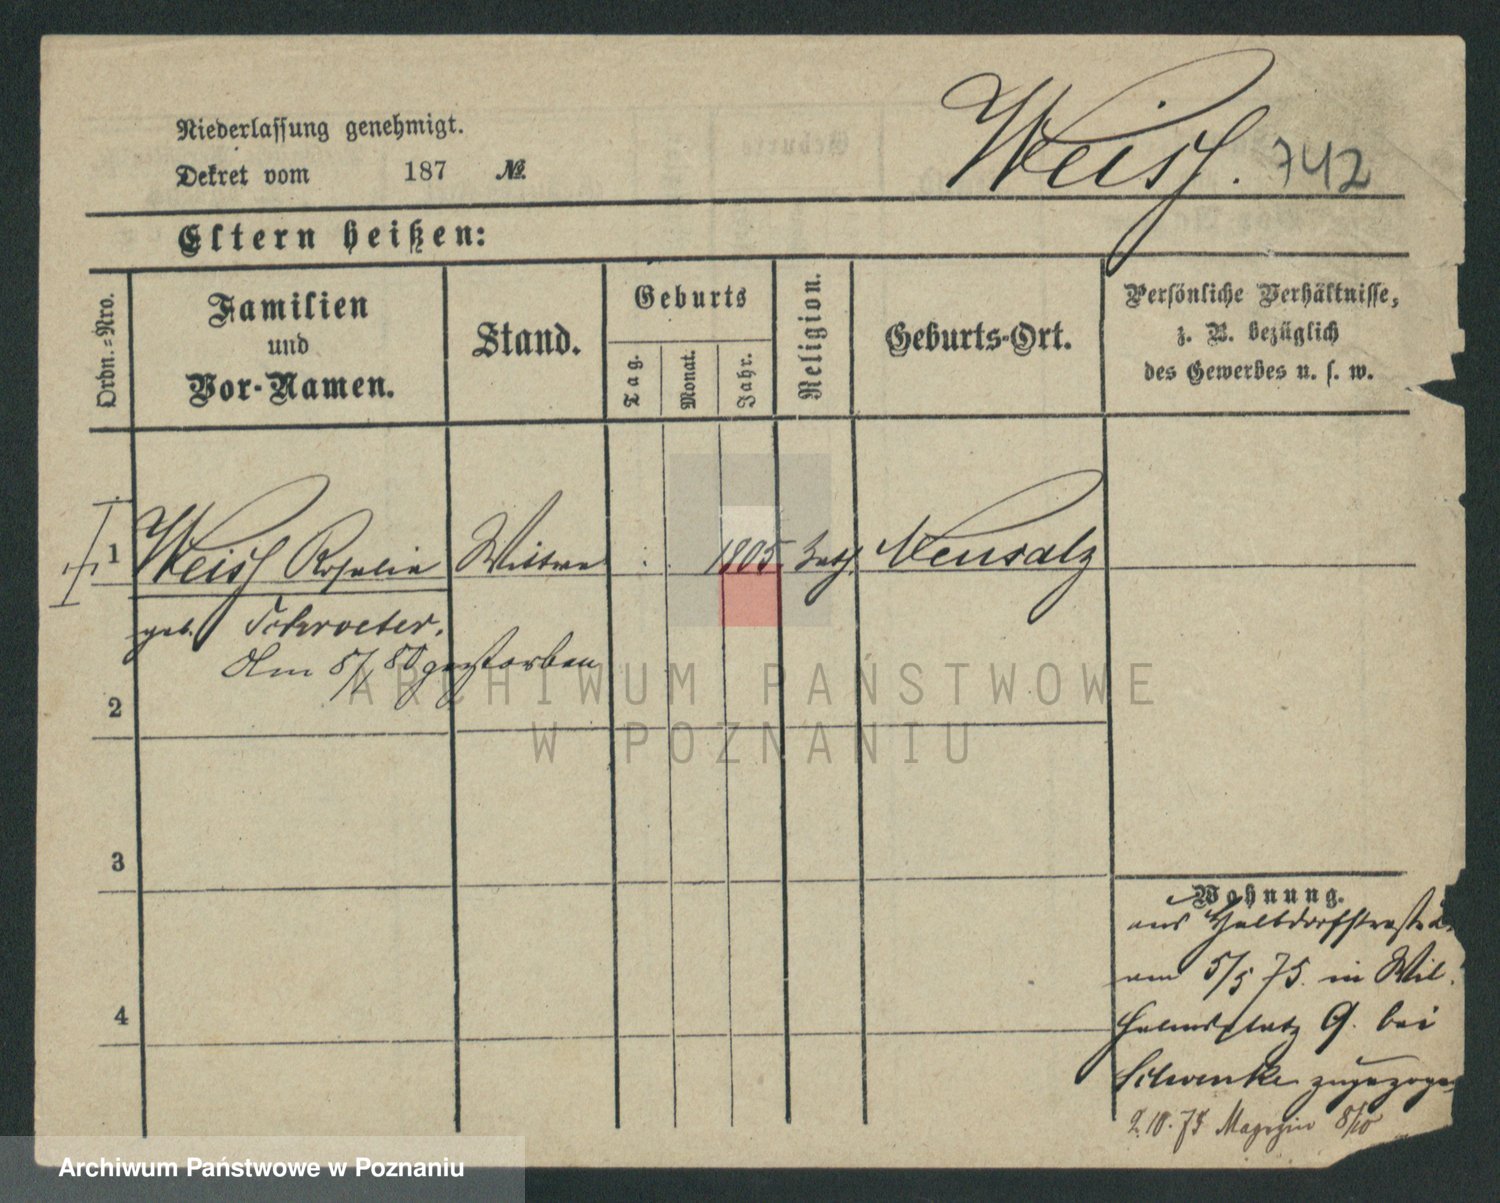 Niederlassung genehmigt.
Dekret vom 187 №
Weisß. 742
Eltern heißen:
Ordn.-Nro.
Familien
und
Vor-Namen.
Stand.
Geburts
Tag.
Monat.
Jahr.
Religion.
Geburts-Ort.
Persönliche Verhältnisse,
z. B. bezüglich
des Gewerbes u. s. w.
1 Weiss Rosalie Wittwe 1805 Neusalz
geb. Schroeter.
Am gestorben
2
3
4
Wohnung.
aus Halbdorfstraße
am 5/5 75. in Wil-
helmsplatz 9. bei
Schwenke zugezogen
2.10.75 Magazin 8/10
ARCHIWUM PAŃSTWOWE
W POZNANIU
Archiwum Państwowe w Poznaniu